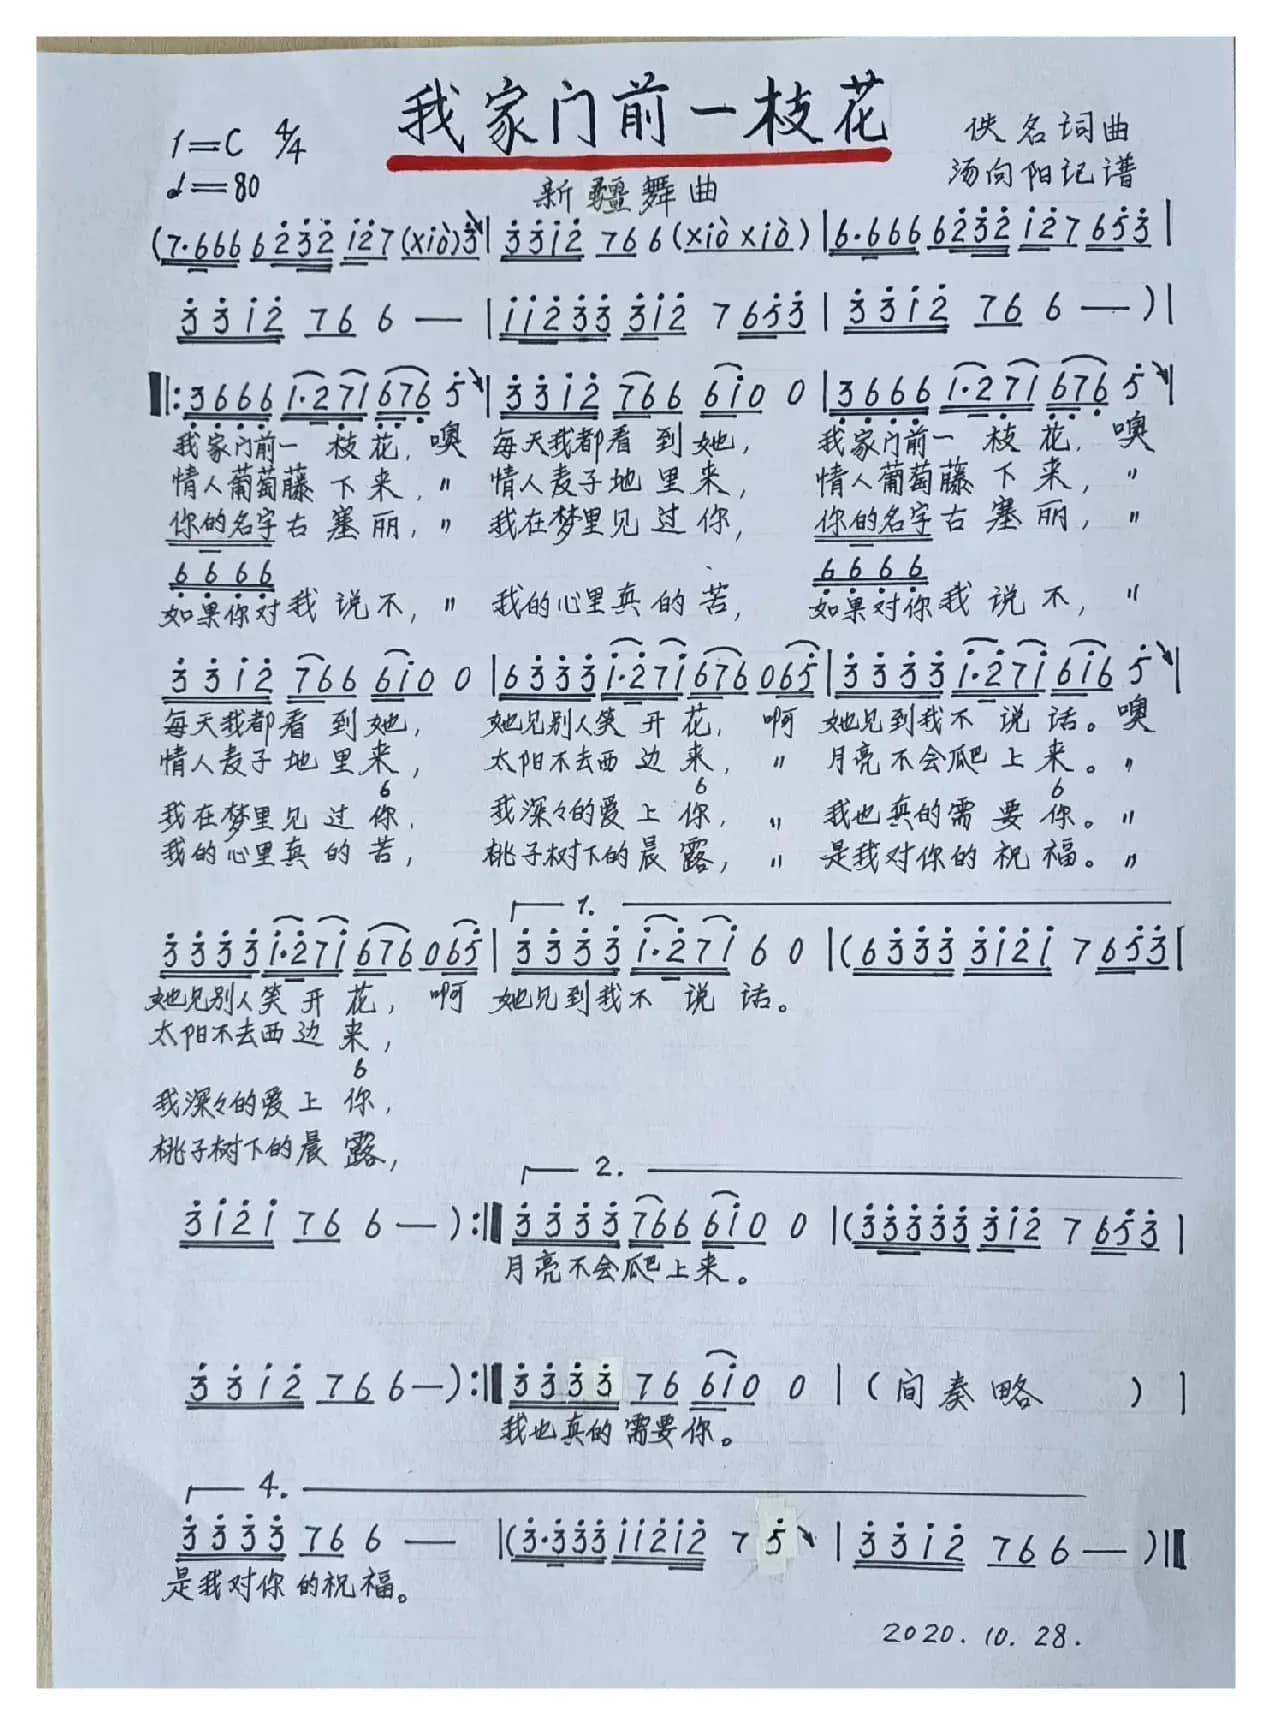 我家门前一枝花
1=C 4/4
佚名词曲
♩=80
新疆舞曲
汤向阳记谱
(7·666 6232 127 (xiò)3 | 3312 766 (xiò xiò) | 6·666 6232 127 653 |
3312 76 6 — | 11233 312 7 653 | 3312 76 6 — ) |
‖: 3666 1·271 676 5 | 3312 766 610 0 | 3666 1·271 676 5 |
我家门前一枝花,噢 每天我都看到她, 我家门前一枝花,噢
情人葡萄藤下来,〃 情人麦子地里来, 情人葡萄藤下来,〃
你的名字古塞丽,〃 我在梦里见过你, 你的名字古塞丽,〃
6666 6666
如果你对我说不,〃 我的心里真的苦, 如果对你我说不,〃
3312 766 610 0 | 63333 1·271 676 065 | 3333 1·271 616 5 |
每天我都看到她, 她见别人笑开花,啊 她见到我不说话。噢
情人麦子地里来, 太阳不去西边来,〃 月亮不会爬上来。〃
6 6 6
我在梦里见过你, 我深々的爱上你,〃 我也真的需要你。〃
我的心里真的苦, 桃子树下的晨露,〃 是我对你的祝福。〃
1.
3333 1·271 676 065 | 3333 1·271 6 0 | (6333 3121 7 653 |
她见别人笑开花,啊 她见到我不说话。
太阳不去西边来,
6
我深々的爱上你,
桃子树下的晨露,
2.
3121 76 6 — ) :‖ 3333 766 610 0 | (33333 312 7 653 |
月亮不会爬上来。
3312 76 6 — ) :‖ 3333 76 610 0 | ( 间奏略 ) |
我也真的需要你。
4.
3333 76 6 — | (3·333 11212 7 5 | 3312 76 6 — ) ‖
是我对你的祝福。
2020.10.28.